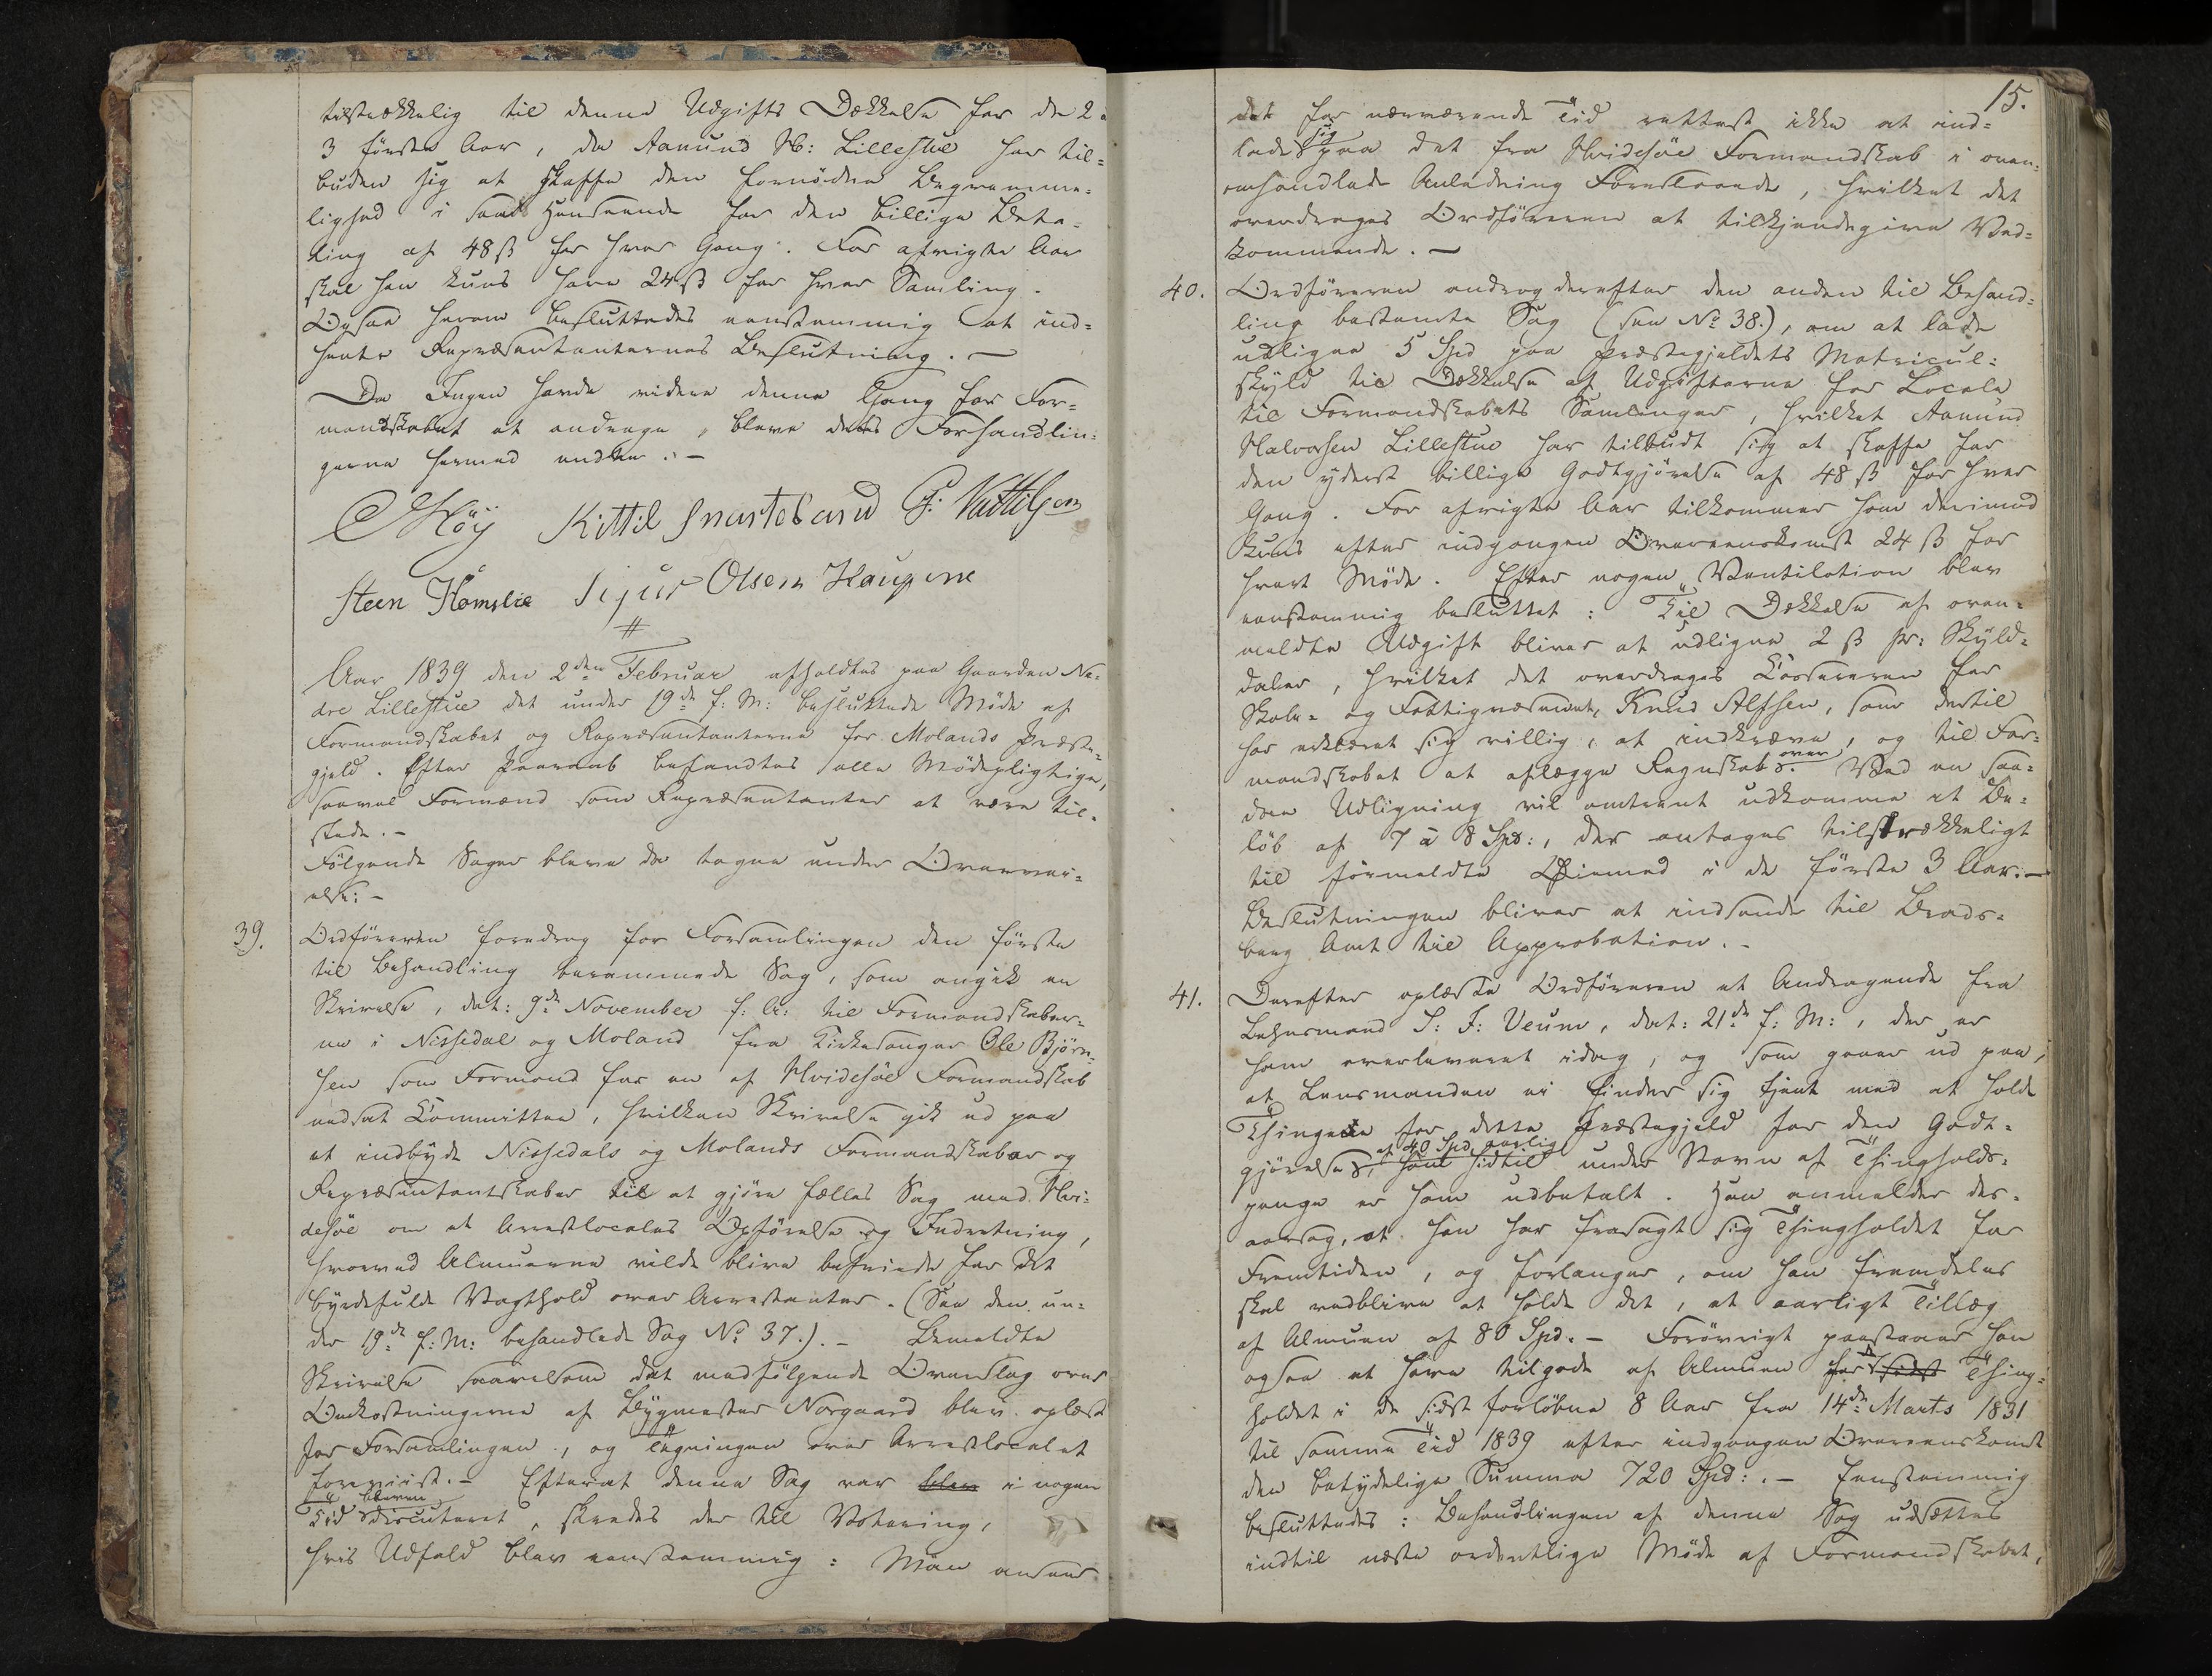 tilstrækkelig til denne Udgifts Dækkelse for de 2 a
3 förste Aar, da Aanund H: Lillestue har til-
buden sig at skaffe den fornödne Beqvemme-
lighed i saads Henseende for den billige Beta-
ling af 48 ß for hver Gang. For øvrigte Aar
skal han kuns have 24 ß for hver Samling.
Ogsaa herom besluttedes eenstemmig at ind-
hente Repræsentanternes Beslutning. —
Da Ingen havde videre denne Gang for For-
mandskabet at andrage, bleve dets Forhandlin-
gerne hermed endte. —
Höÿ Kittil Snarteland G: Kittilsen
Steen Homslie Sijur Olsen Haugene
#
Aar 1839 den 2den Februar afholdtes paa Gaarden Ne-
dre Lillestue det under 19de f: M: besluttede Möde af
Formandskabet og Repræsentanterne for Molands Præste-
gjeld. Efter Paaraab befandtes alle Mödepligtige,
saavel Formænd som Repræsentanter at være til-
stede. —
Fölgende Sager bleve da tagne under Overvei-
else: —
39. Ordföreren foredrog for Forsamlingen den förste
til Behandling berammede Sag, som angik en
Skrivelse, dat: 9de November f: A: til Formandskaber-
ne i Nissedal og Moland fra Kirkesanger Ole Björn-
sen som Formand for en af Hvidesöe Formandskab
nedsat Committee, hvilken Skrivelse gik ud paa
at indbyde Nissedals og Molands Formandskaber og
Repræsentantskaber til at gjöre fælles Sag med Hvi-
desöe om et Arrestlocales Opförelse og Indretning,
hvorved Almuerne vilde blive befriede for det
byrdefulde Vagthold over Arrestanter. (See den un-
der 19de f: M: behandlede Sag No 37.). — Bemeldte
Skrivelse saavelsom det medfölgende Overslag over
Omkostningerne af Bygmester Norgaard blev oplæst
for Forsamlingen, og Tegningen over Arrestlocalet
foreviist. — Efterat denne Sag var blev i nogen
Tid bleven discuteret, skredes der til Votering,
hvis Udfald blev eenstemmig: Man anseer
15.
det for nærværende Tid rettest ikke at ind-
lade sig paa det fra Hvidesöe Formandskab i oven-
omhandlede Anledning Foreslaaede, hvilket det
overdroges Ordföreren at tilkjendegive Ved-
kommende. —
40. Ordföreren androg derefter den anden til Behand-
ling bestemte Sag (see No 38.), om at lade
udligne 5 Spd paa Præstegjeldets Matricul-
skyld til Dækkelse af Udgifterne for Locale
til Formandskabets Samlinger, hvilket Aanund
Halvorsen Lillestue har tilbudt sig at skaffe for
den yderst billige Godtgjörelse af 48 ß for hver
Gang. For øvrigte Aar tilkommer ham derimod
kuns efter indgangen Overeenskomst 24 ß for
hvert Möde. Efter nogen Ventilation blev
eenstemmig besluttet: Til Dækkelse af oven-
meldte Udgift bliver at udligne 2 ß pr: Skyld-
daler, hvilket det overdroges Cassereren for
Skole- og Fattigvæsenet, Knud Alfsen, som dertil
har erklæret sig villig, at indkræve, og til For-
mandskabet at aflægge Regnskab over. Ved en saa-
dan Udligning vil omtrent udkomme et Be-
löb af 7 à 8 Spd:, der antages tilstrækkeligt
til formeldte Öiemed i de förste 3 Aar. —
Beslutningen bliver at indsende til Brads-
berg Amt til Approbation. —
41. Derefter oplæste Ordföreren et Andragende fra
Lehnsmand S: J: Veum, dat: 21de f: M:, der er
ham overleveret idag, og som gaaer ud paa,
at Lensmanden ei finder sig tjent med at holde
Thingene for dette Præstegjeld for den Godt-
gjörelse af 40 Spd aarlig, som hidtil under Navn af Thingholds-
penge er ham udbetalt. Han anmelder der-
aarsag, at han har frasagt sig Thingholdet for
Fremtiden, og forlanger, om han fremdeles
skal vedblive at holde det, et aarligt Tillæg
af Almuen af 80 Spd. — Forövrigt paastaaer han
ogsaa at have tilgode af Almuen for sidst Thing-
holdet i de sidst forlöbne 8 Aar fra 14de Marts 1831
til samme Tid 1839 efter indgangen Overeenskomst
den betydelige Summa 720 Spd:. — Eenstemmig
besluttedes: Behandlingen af denne Sag udsættes
indtil næste ordentlige Möde af Formandskabet,